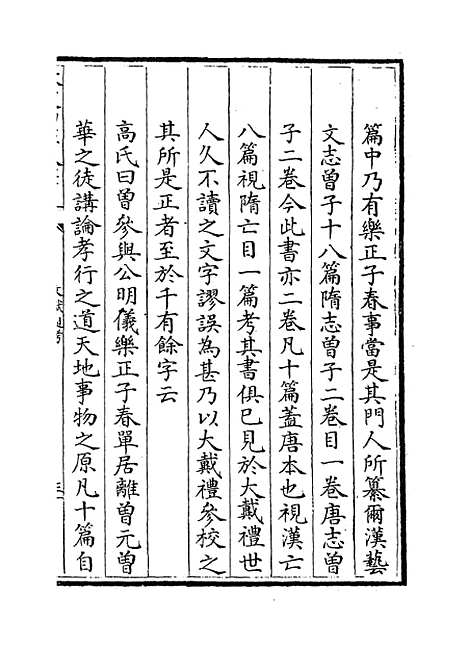 篇中乃有樂正子春事當是其門人所纂爾漢藝
文志曾子十八篇隋志曾子二卷目一卷唐志曾
子二卷今此書亦二卷凡十篇蓋唐本也視漢亡
八篇視隋亡目一篇考其書俱已見於大戴禮世
人久不讀之文字謬誤為甚乃以大戴禮參校之
其所是正者至於千有餘字云
高氏曰曾參與公明儀樂正子春單居離曾元曾
華之徒講論孝行之道天地事物之原凡十篇自